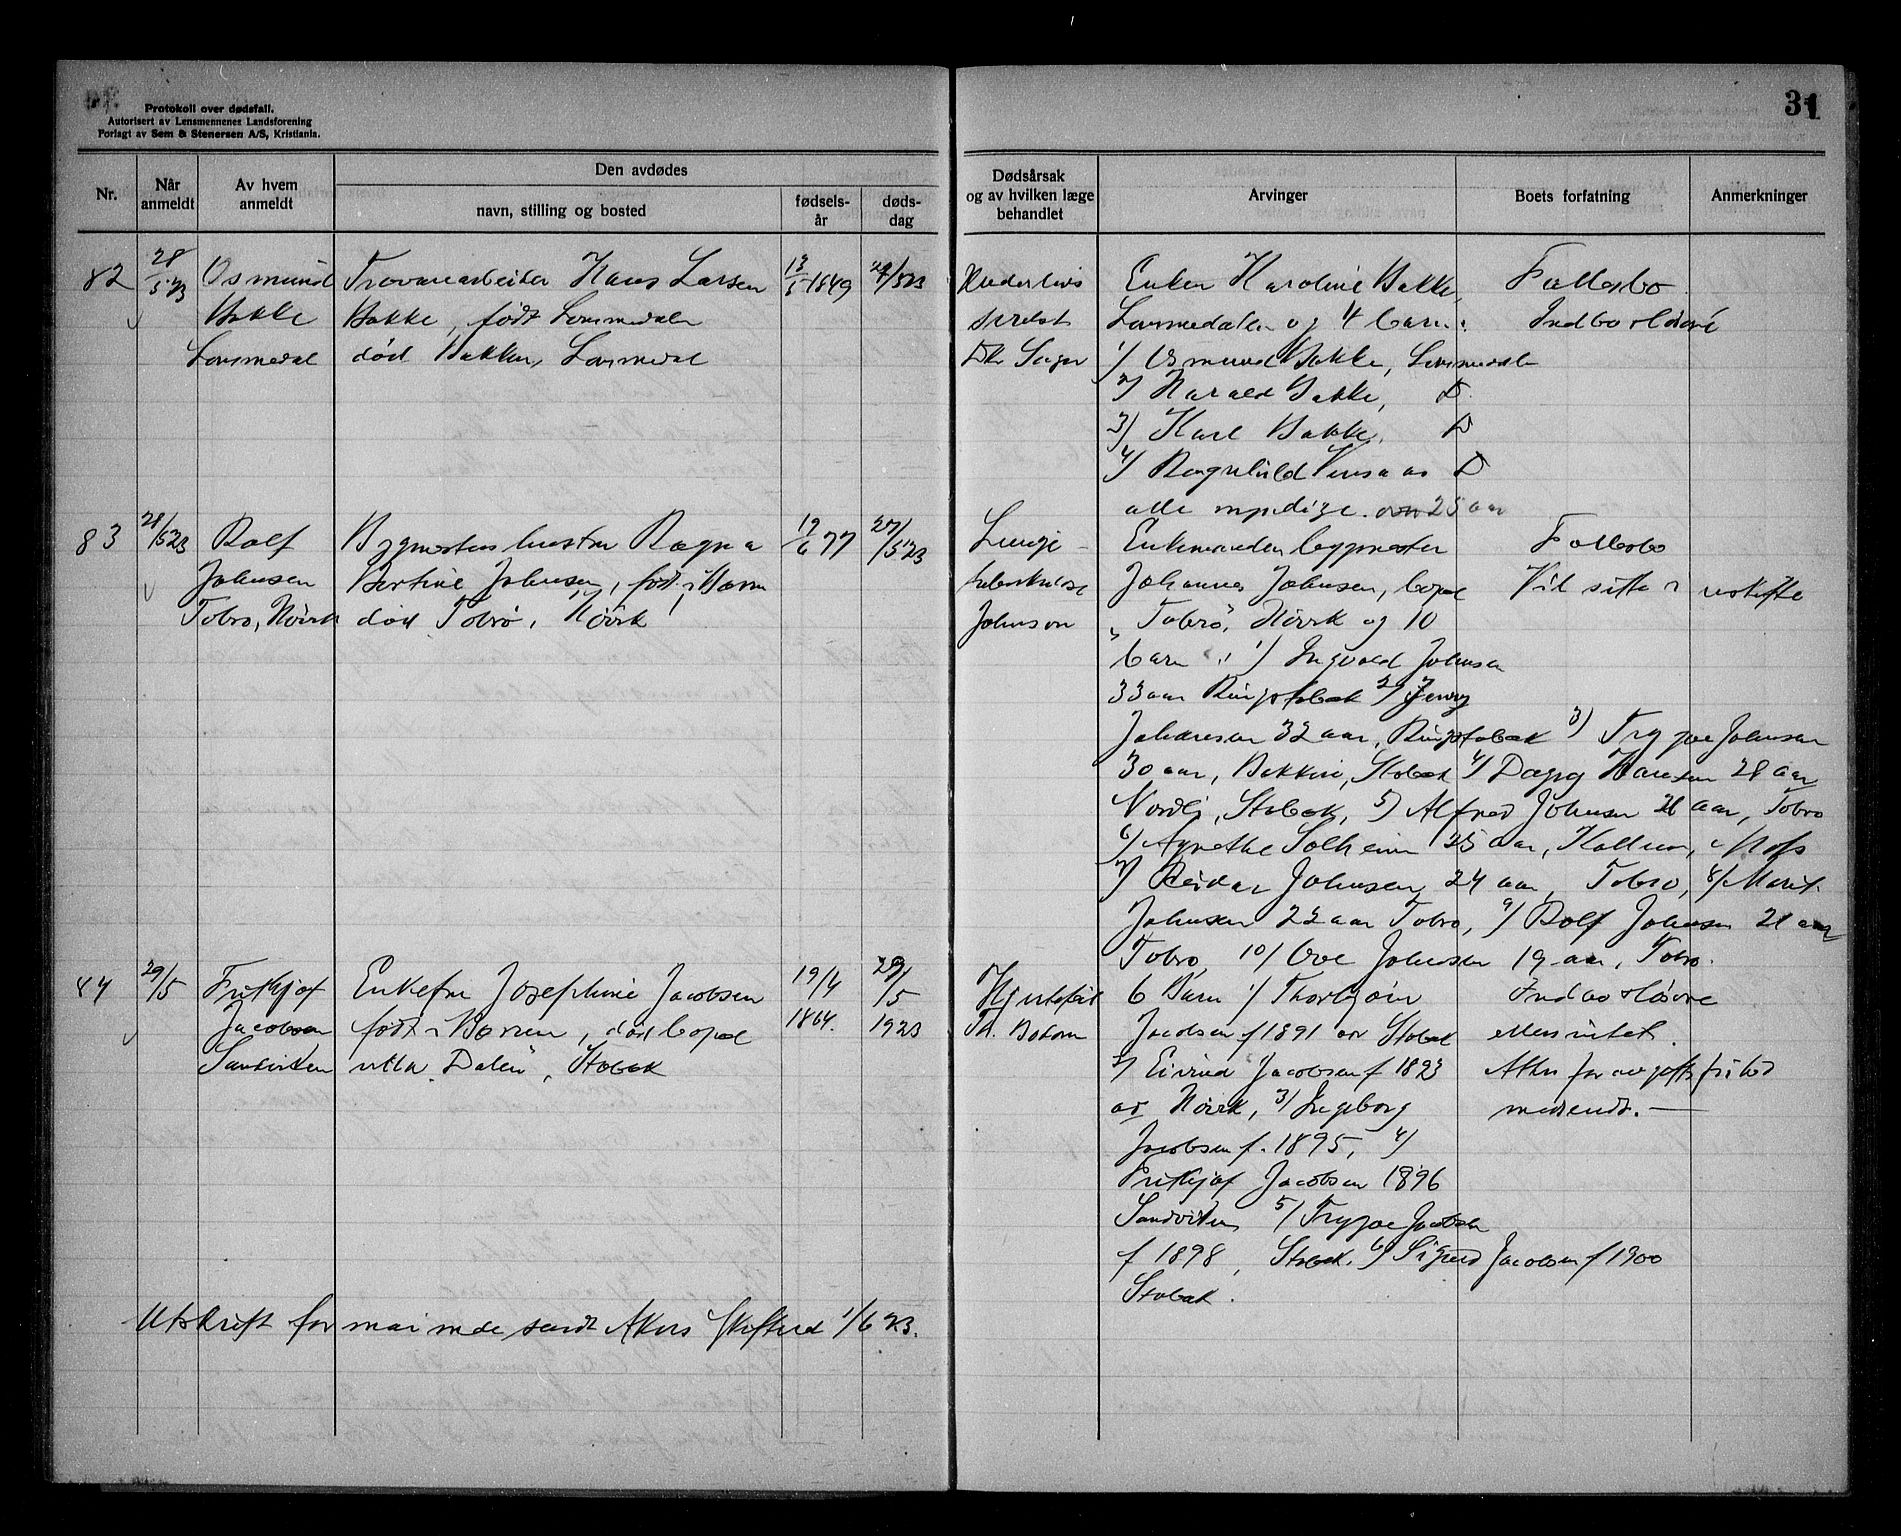 Protokoll over dødsfall.
Autorisert av Lensmennenes Landsforening
Forlagt av Sem & Stenersen A/S, Kristiania.
31
Nr.
Når anmeldt
Av hvem anmeldt
Den avdødes
navn, stilling og bosted
fødsels-
år
døds-
dag
Dødsårsak
og av hvilken læge
behandlet
Arvinger
Boets forfatning
Anmerkninger
82
28/5 23
Osmund
Bakke
Lommedal
Hans Larsen
Bakke, født Lommedalen
død Bakken, Lommedal
13/5 1849
/5 23
Underlivs
Dr.
Enken Karoline Bakke,
Lommedalen og 4 barn:
1/ Osmund Bakke, Lommedalen
2/ Harald Bakke, D
3/ Karl Bakke, D
4/ Ragnhild D
alle myndige. over 25 aar
Fællesbo
Indbo & løsøre
83
28/5 23
Rolf
Johnsen
Tobro, Høvik
Bygmesters hustru Ragna
Bertine Johnsen, født i
død Tobro, Høvik
77
27/5 23
Lunge-
tuberkulose
Johnson
Enkemanden bygmester
Johannes Johnsen, bopæl
"Tobro", Høvik og 10
barn: 1/ Ingvald Johnsen
33 aar Ringstabæk 2/ Jenny
32 aar, Ringstabæk 3) Trygve Johnsen
30 aar, Bakken, Stabæk 4/ Dagny Hansen 28 aar
Nordli, Stabæk, 5) Alfred Johnsen 26 aar, Tobro
6/ Agnethe Solheim 25 aar, Moss
7) Reidar Johnsen 24 aar, Tobro, 8/ Marit
Johnsen 22 aar Tobro, 9/ Rolf Johnsen 21 aar
Tobro, 10/ Ove Johnsen 19 aar, Tobro.
Fællesbo
Vil sitte i uskifte
84
29/5
Frithjof
Jacobsen
Sandviken
Enkefru Josephine Jacobsen
født i, død bopæl
villa "Dalen", Stabæk
19/4
1864.
29/5
1923
Hjertefeil
6 Barn 1/ Thorbjørn
Jacobsen f 1891 av Stabæk
2/ Eivind Jacobsen f 1893
av Høvik, 3/ Ingeborg
Jacobsen f. 1895, 4/
Frithjof Jacobsen 1896
Sandviken 5/ Trygve Jacobsen
f 1898, Stabæk. 6/ Sigurd Jacobsen f 1900
Stabæk.
Indbo & løsøre
ellers intet.
Attest for avgiftsfrihed
medsendt. —
Utskrift for mai mde sendt Akers Skifteret 1/6 23.